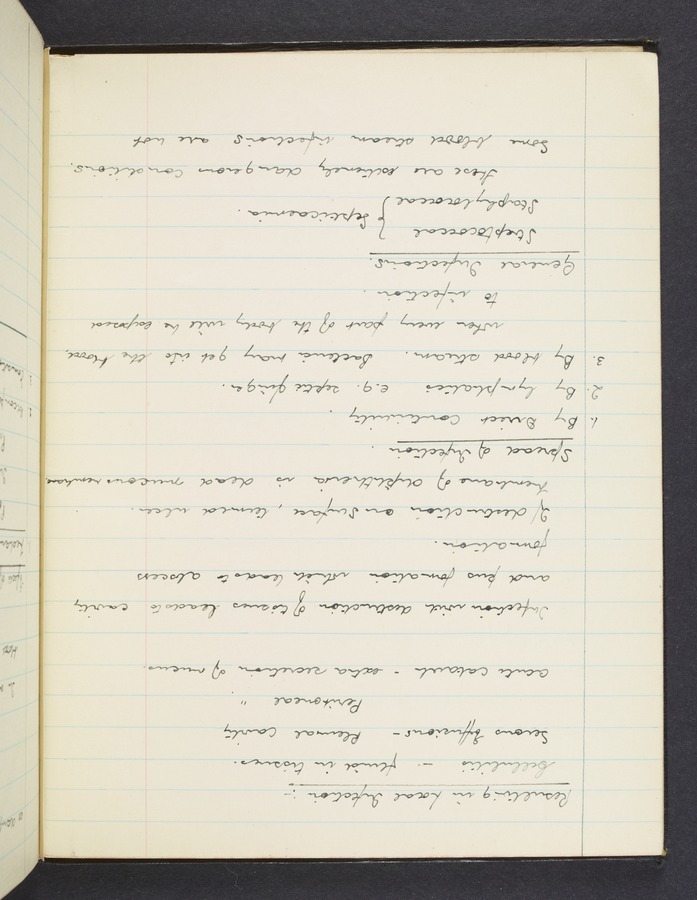 Resulting in Local Infection :-
Cellulitis - fluid in tissues.
Serous Effusions - Pleural Cavity
Peritoneal "
Acute Catarrh - extra secretion of mucus.
Infection with destruction of tissues leads to cavity
and pus formation which leads to abscess
formation.
If destruction on surface, termed ulcer.
Membrane of diphtheria is dead mucous membrane
Spread of Infection.
1. By Direct Continuity.
2. By lymphatics e.g. septic finger.
3. By blood stream. Bacteria may get into the blood.
when every part of the body will be exposed
to infection.
General Infections.
Streptococcal
Staphylococcal } Septicaemia.
These are extremely dangerous conditions.
Some blood stream infections are not